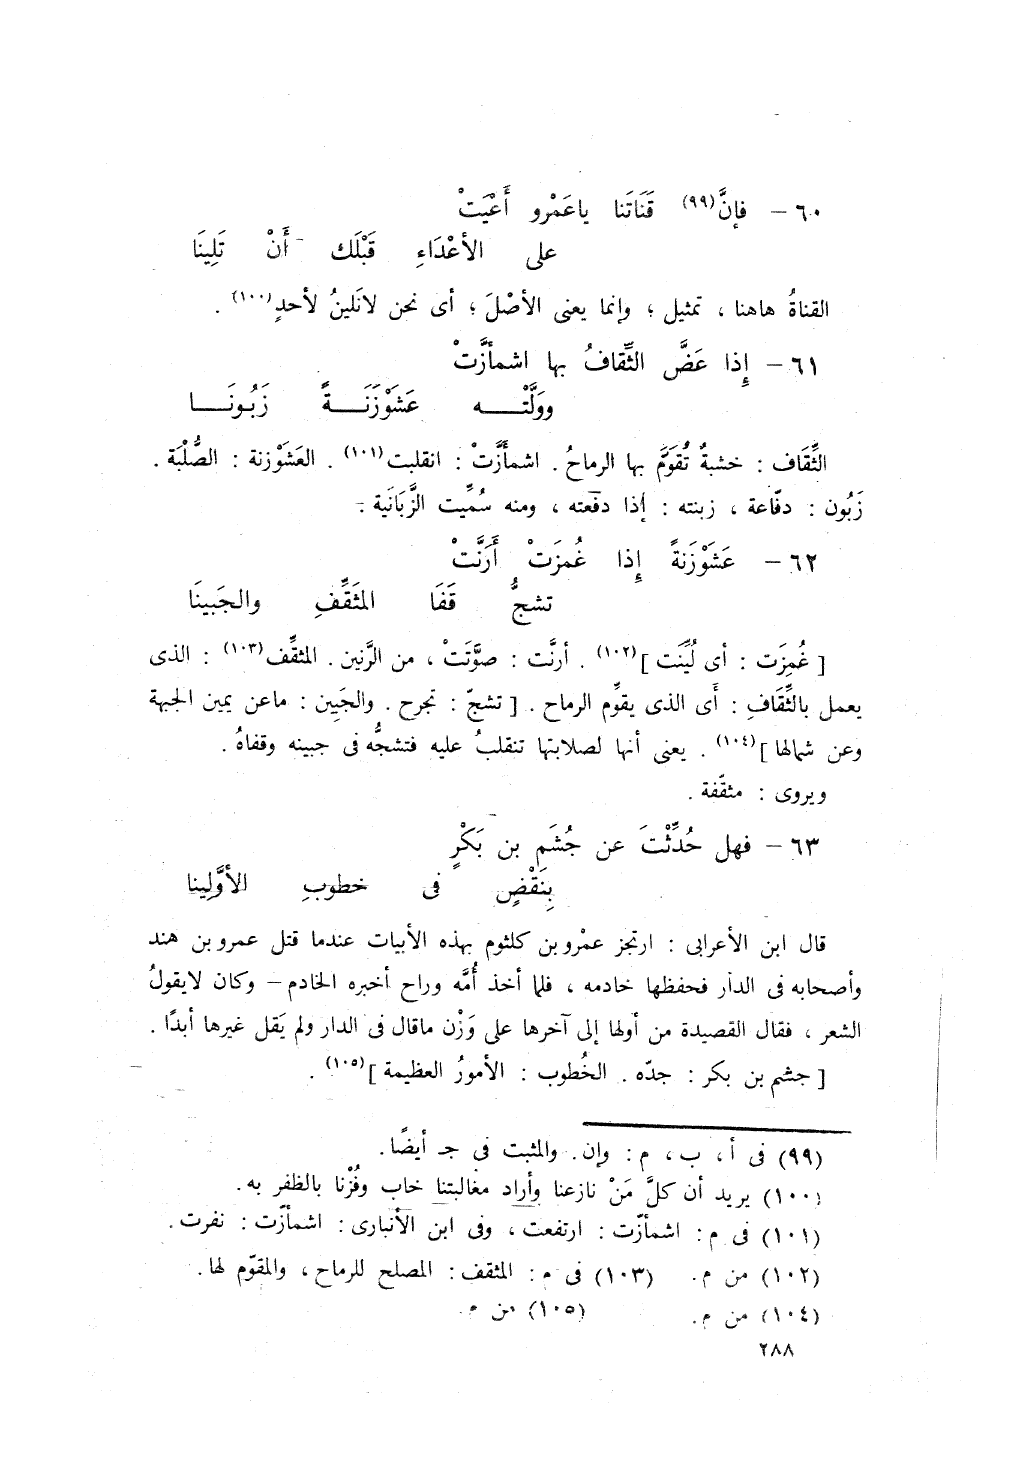 ٦٠ – فإنَّ(٩٩) قَنَاتَنا ياعَمْرو أَعْيَتْ
على الأعْدَاءِ قَبْلَك أَنْ تَلِينَا
القناةُ هاهنا ، تمثيل ؛ وإنما يعنى الأصْلَ ؛ أى نحن لانَلينُ لأحدٍ(١٠٠) .
٦١ – إِذا عَضَّ الثِّقافُ بها اشمأزَّتْ
وولَّتْـــــه عَشَوْزَنَـــةً زَبُونَــــا
الثِّقَاف : خشبةٌ تُقوَّم بها الرماحُ. اشمأزَّتْ : انقلبت(١٠١) . العَشَوْزنة : الصُّلْبَة .
زَبُون : دفّاعة ، زبنته : إذا دفعته ، ومنه سُمِّيت الزَّبَانَية .
٦٢ – عَشَوْزَنةً إِذا غُمزَتْ أَرَنَّتْ
تشجُّ قَفَا المثَقِّفِ والجَبينَا
[ غُمِزَت : أى لُيِّنَت ](١٠٢) . أرنَّت : صوَّتَتْ ، من الرَّنين . المثقِّف(١٠٣) : الذى
يعمل بالثِّقَافِ : أَى الذى يقوِّم الرماح . [ تشجّ : تجرح . والجَبِين : ماعن يمين الجبهة
وعن شمالها ](١٠٤) . يعنى أنها لصلابتها تنقلبُ عليه فتشجُّه فى جبينه وقفاهُ .
ويروى : مثقّفة .
٦٣ – فهل حُدِّثْتَ عن جُشَمِ بن بَكْرٍ
بِنَقْضٍ فى خطوبِ الأوَّلِينا
قال ابن الأعرابى : ارتجز عمْرو بن كلثوم بهذه الأبيات عندما قتل عمرو بن هند
وأصحابه فى الدار فحفظها خادمه ، فلما أخذ أُمَّه وراح أخبره الخادم – وكان لايقولُ
الشعر ، فقال القصيدة من أولها إلى آخرها على وَزْن ماقال فى الدار ولم يَقل غيرها أبدًا .
[ جشم بن بكر : جدّه . الخُطوب : الأمورُ العظيمة ](١٠٥) .
(٩٩) فى أ ، ب ، م : وإن. والمثبت فى جـ أيضًا.
(١٠٠) يريد أن كلَّ مَنْ نازعنا وأراد مغالبتنا خاب وفُزْنا بالظفر به.
(١٠١) فى م : اشمأزّت : ارتفعت ، وفى ابن الأنبارى : اشمأزّت : نفرت .
(١٠٢) من م. (١٠٣) فى م : المثقف : المصلح للرماح ، والمقوّم لها.
(١٠٤) من م. (١٠٥) من م.
٢٨٨